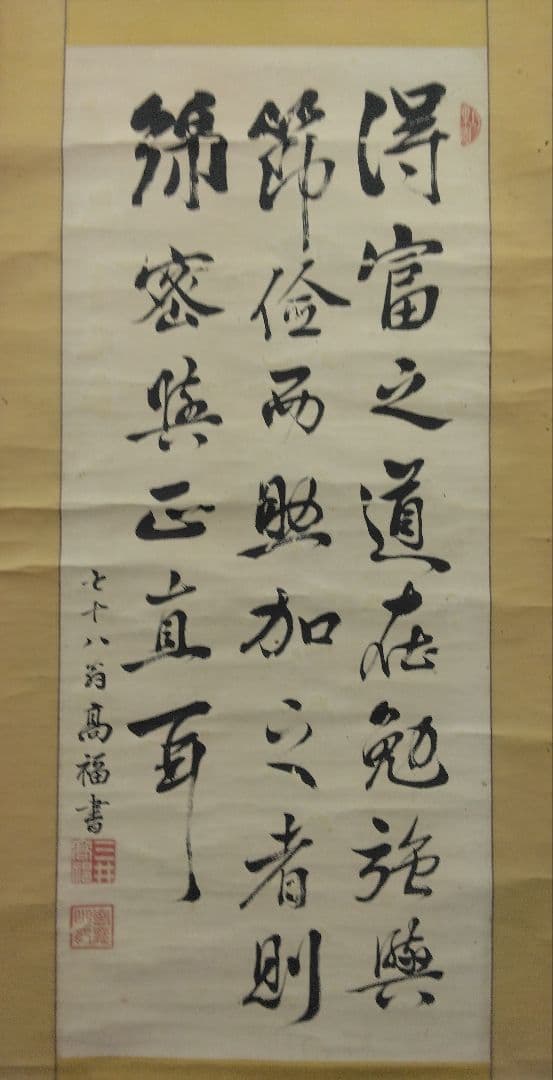 得富之道在勉強與
節儉而點加之者則
綿密與正直耳
七十八翁高福書
三井